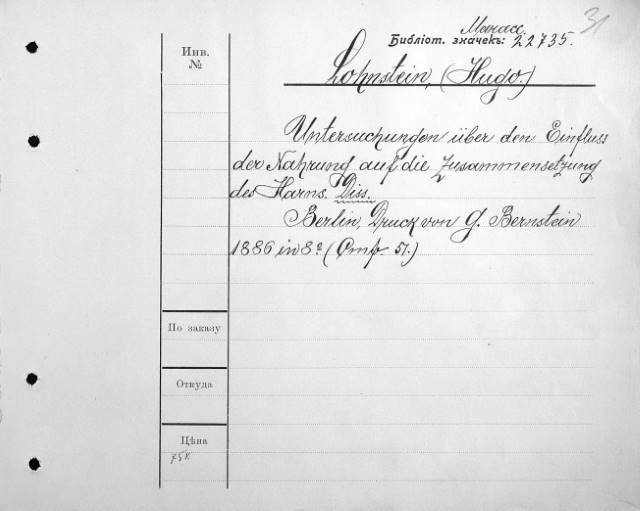 31
Манасс.
Библіот. значекъ: 22735.
Инв.
№
Lohnstein, (Hugo.)
Untersuchungen über den Einfluss
der Nahrung auf die Zusammensetzung
des Harns. Diss.
Berlin, Druck von G. Bernstein
1886 in 8º (Стр. 51.)
По заказу
Откуда
Цѣна
75к.